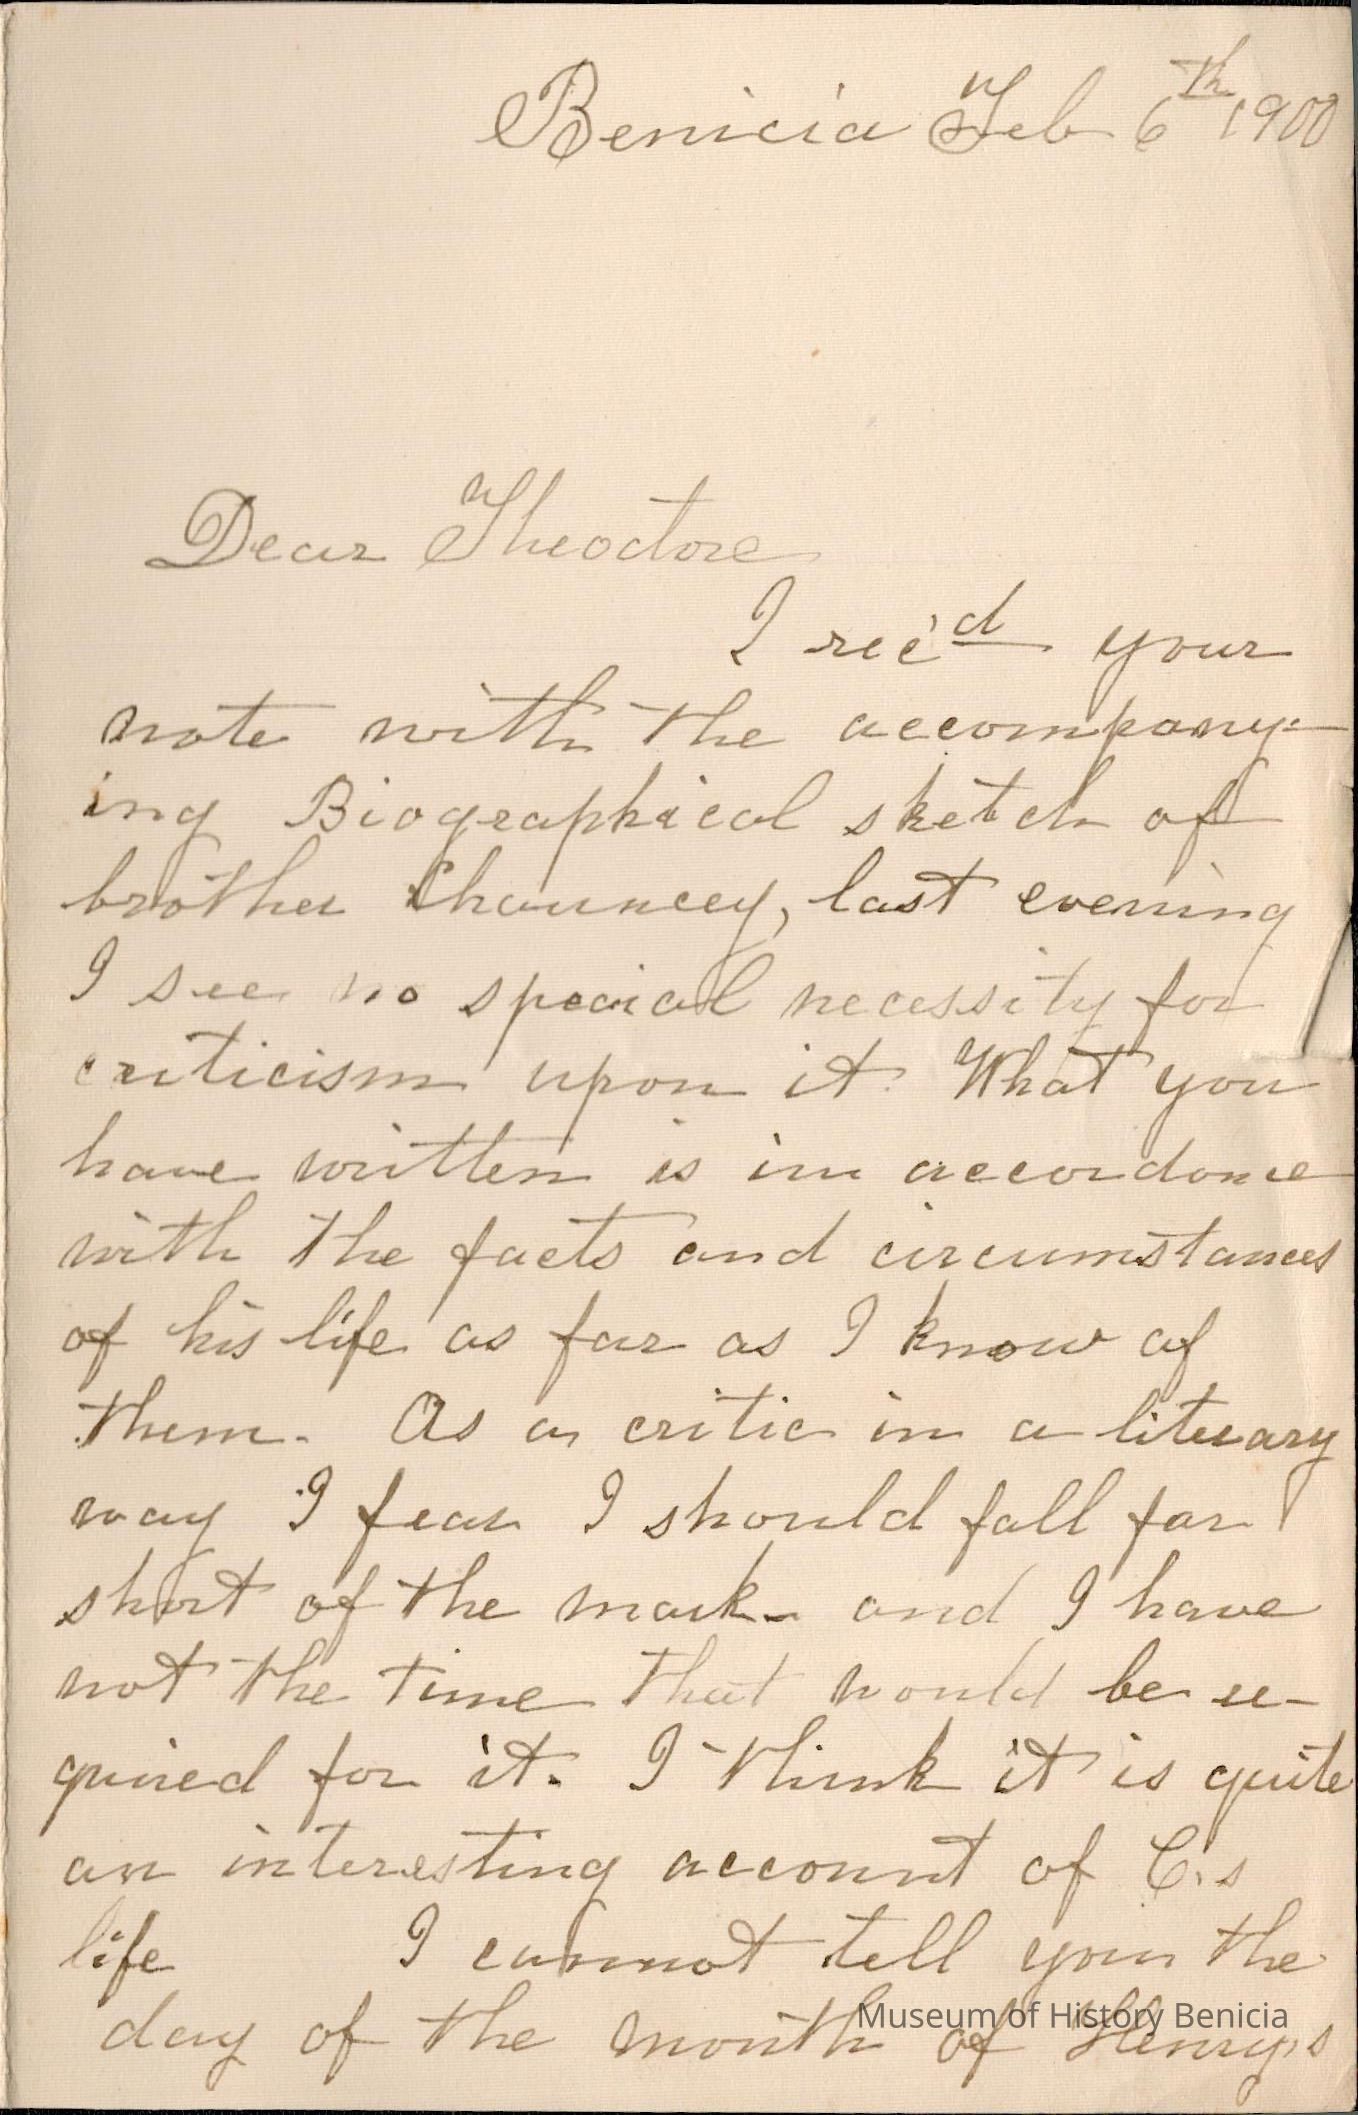 Benicia Feb 6th 1900
Dear Theodore
I rec'd your
note with the accompany-
ing Biographical sketch of
brother Chauncey, last evening
I see no special necessity for
criticism upon it. What you
have written is in accordance
with the facts and circumstances
of his life as far as I know of
them. As a critic in a literary
way I fear I should fall far
short of the mark - and I have
not the time that would be re-
quired for it. I think it is quite
an interesting account of C.s
life I cannot tell you the
day of the month of Henry's
Museum of History Benicia